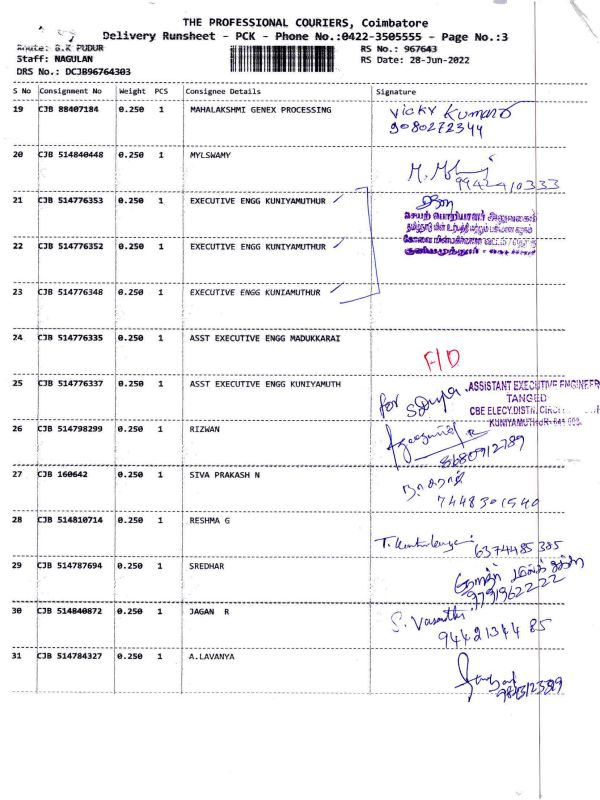 THE PROFESSIONAL COURIERS, Coimbatore
Delivery Runsheet - PCK - Phone No.:0422-3505555 - Page No.:3
Route: B.K PUDUR RS No.: 967643
Staff: NAGULAN RS Date: 28-Jun-2022
DRS No.: DCJB96764303
S No Consignment No Weight PCS Consignee Details Signature
19 CJB 88407184 0.250 1 MAHALAKSHMI GENEX PROCESSING Vicky Kumar
9080272344
20 CJB 514840448 0.250 1 MYLSWAMY M.
9942410333
21 CJB 514776353 0.250 1 EXECUTIVE ENGG KUNIYAMUTHUR
செயற் பொறியாளர் அலுவலகம்
22 CJB 514776352 0.250 1 EXECUTIVE ENGG KUNIYAMUTHUR
23 CJB 514776348 0.250 1 EXECUTIVE ENGG KUNIAMUTHUR
24 CJB 514776335 0.250 1 ASST EXECUTIVE ENGG MADUKKARAI
F/D
25 CJB 514776337 0.250 1 ASST EXECUTIVE ENGG KUNIYAMUTH for ASSISTANT EXECUTIVE ENGINEER
TANGED
CBE ELECY.DISTN.
26 CJB 514798299 0.250 1 RIZWAN KUNIYAMUTHUR
8680912789
27 CJB 160642 0.250 1 SIVA PRAKASH N
7448301540
28 CJB 514810714 0.250 1 RESHMA G T.
6374485385
29 CJB 514787694 0.250 1 SREDHAR
9791962222
30 CJB 514840872 0.250 1 JAGAN R S. Vasanthi
9442134485
31 CJB 514784327 0.250 1 A.LAVANYA